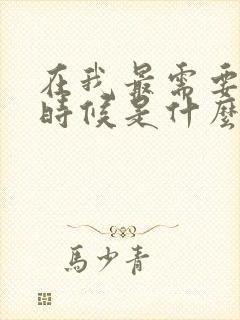 在我最需要
時候是什麼
馬少青